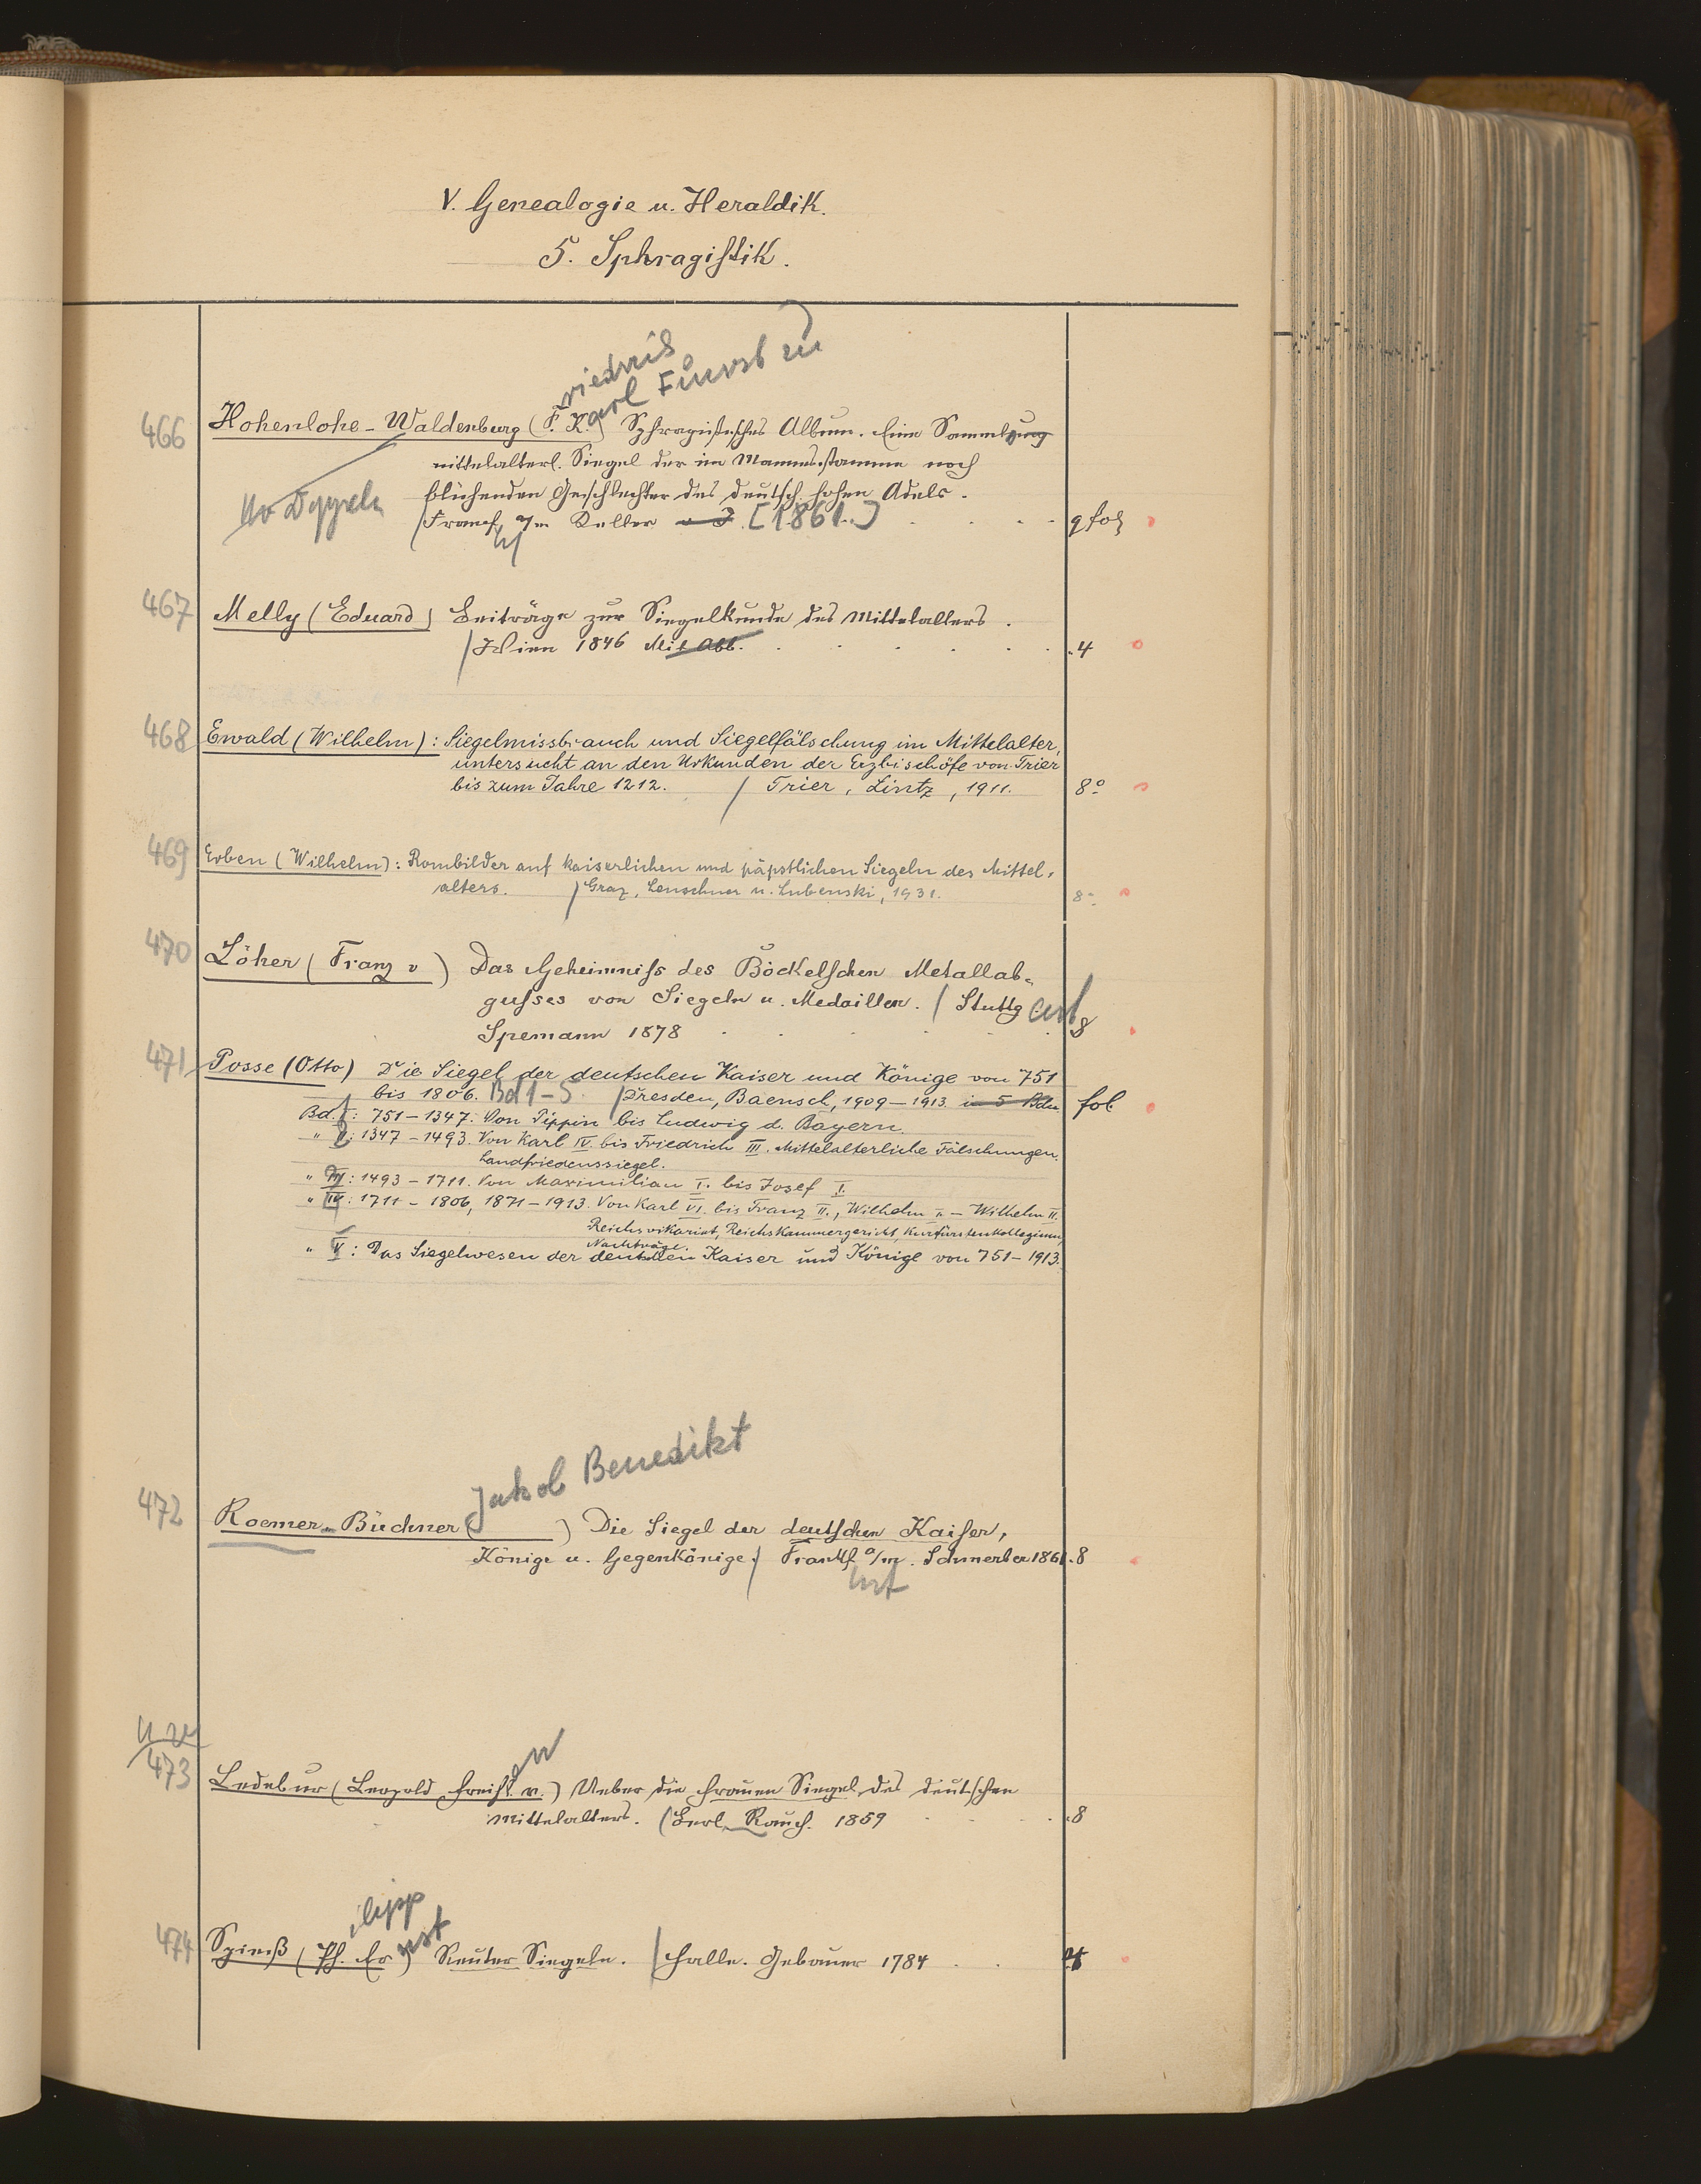 V. Genealogie u. Heraldik.
5. Sphragistik.
riedrich
arl Fürst zu
466 Hohenlohe-Waldenburg (F. K.) Sphragistisches Album. Eine Sammlung
mittelalterl. Siegel der im Mannesstamme noch
blühenden Geschlechter des deutsch. hohen Adels.
Frankf a/m Keller o J. [1861.] q fol
467 Melly (Eduard) Beiträge zur Siegelkunde des Mittelalters.
/ Wien 1846 Mit Abb. 4
468 Ewald (Wilhelm): Siegelmissbrauch und Siegelfälschung im Mittelalter,
untersucht an den Urkunden der Erzbischöfe von Trier
bis zum Jahre 1212. / Trier, Lintz, 1911. 8°
469 Erben (Wilhelm): Rombilder auf kaiserlichen und päpstlichen Siegeln des Mittel-
alters. / Graz, Leuschner u. Lubenski, 1931. 8°
470 Löher (Franz v) Das Geheimniss des Böckelschen Metallab-
gusses von Siegeln u. Medaillen. / Stuttg art
Spemann 1878 8
471 Posse (Otto) Die Siegel der deutschen Kaiser und Könige von 751
bis 1806. Bd 1-5 / Dresden, Baensch, 1909-1913. in 5 Bdn fol
Bd. I: 751-1347: Von Pippin bis Ludwig d. Bayern.
" II: 1347-1493. Von Karl IV. bis Friedrich III. Mittelalterliche Fälschungen.
Landfriedenssiegel.
" III: 1493-1711. Von Maximilian I. bis Josef I.
" IV: 1711-1806, 1871-1913. Von Karl VI. bis Franz II., Wilhelm I. - Wilhelm II.
Reichsvikariat, Reichskammergericht, Kurfürstenkollegium,
Nachträge.
" V: Das Siegelwesen der deutschen Kaiser und Könige von 751-1913.
Jakob Benedikt
472 Roemer-Büchner ( ) Die Siegel der deutschen Kaiser,
Könige u. Gegenkönige. / Frankf a/m. Schmerber 1861. 8
473 Ledebur (Leopold Freih. v.) Ueber die Frauen Siegel des deutschen
Mittelalters. / Berl. Rauch. 1859 8
ilipp
nst
474 Spieß (Ph. Er) Reuter Siegeln. / Halle. Gebauer 1784 4